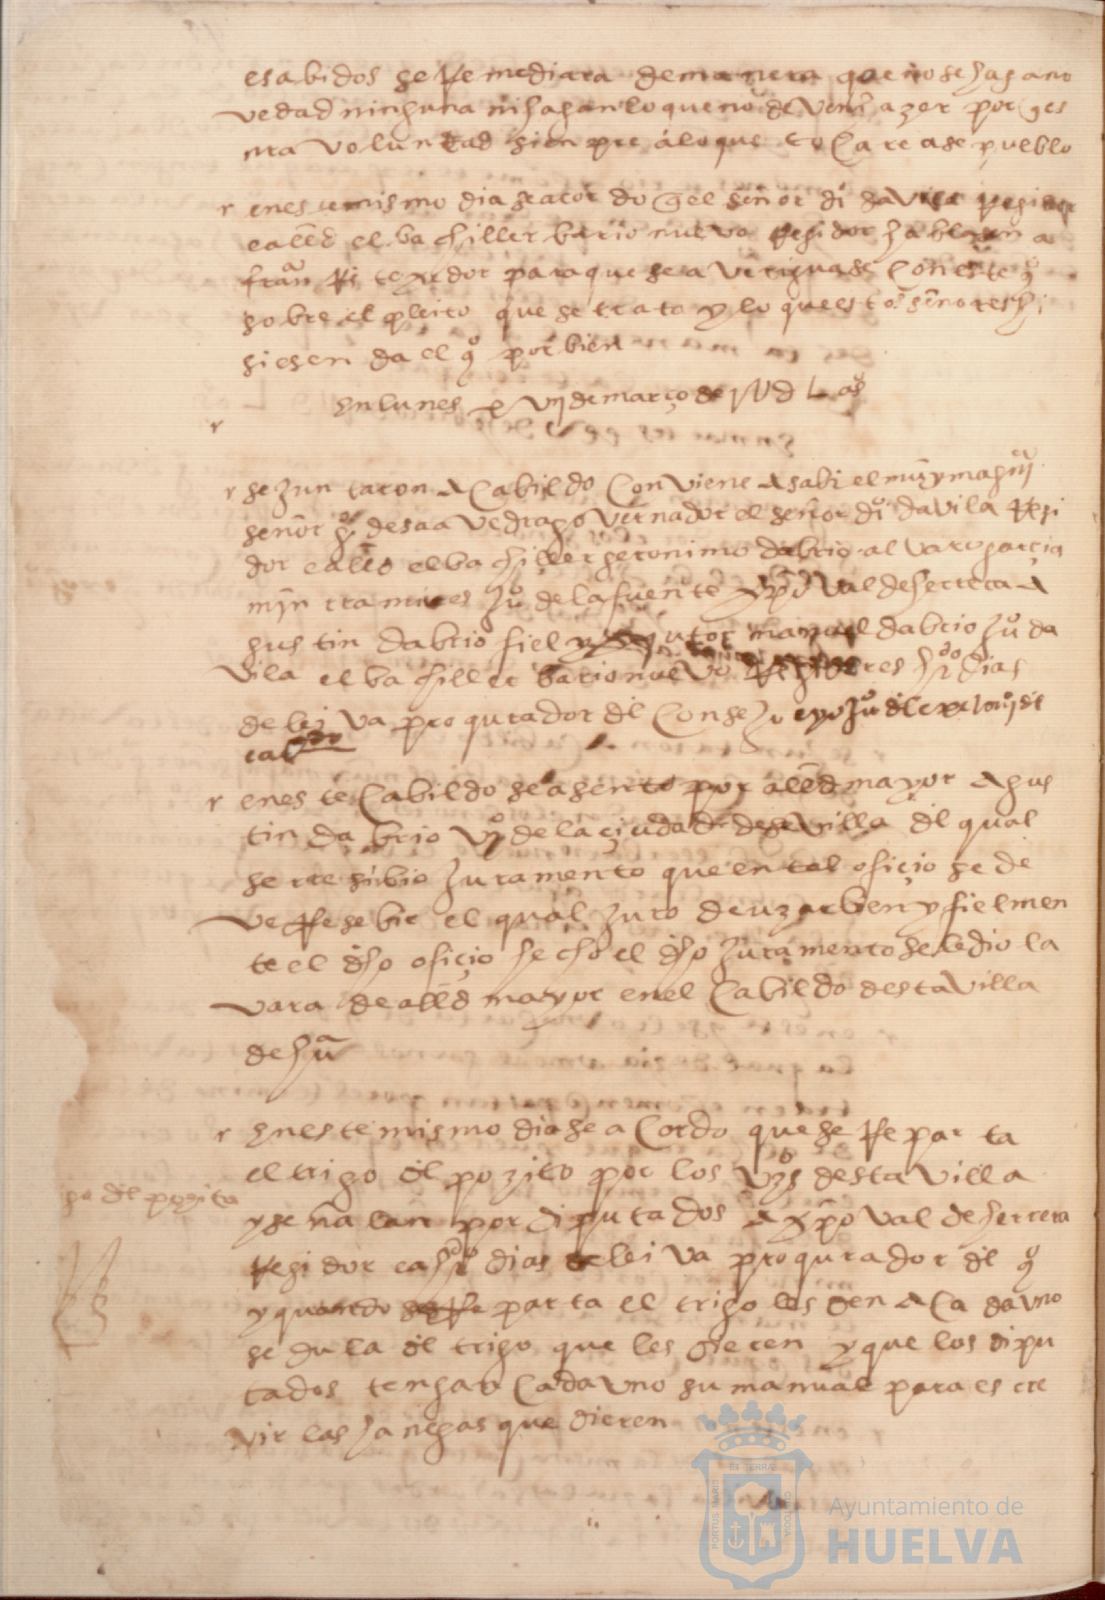 esabidos se Remediara demanera que no se haga no
vedad ninguna ni hagan lo que no deven hazer por ges
nra voluntad sienpre á lo que tocare a ese pueblo
r en este mismo dia se acordo q el señor dº davila Regidor
e allde el bachiller barionuevo Regidor hablasen a
franco texedor para que se averiguase con este qº
sobre el pleito que se trato y lo que estos señores hi
siesen da el qº por bien
En lunes xvij de março de jUd L años
r
r se juntaron a Cabildo Conviene a saber el muy magco
señor de saavedra governador el señor dº davila Regi
dor e allde el bachiller geronimo dabrio alvaro garçia
min tramires juº de la fuente xpoval de herrera a
gustin dabrio fiel y manuel dabrio juº da
vila el bachiller barionuevo Regidores dias
de leiva proqurador dl Consejo e yo juº
cabdo
r en este Cabildo se asento por allde mayor agus
tin dabrio vº de la çiudad de sevilla dl qual
se rresibio juramento que en tal ofiçio se de
ve Resebir el qual juro de uzar bien y fielmen
te el dho ofiçio hecho el dho juramento se le dio la
vara de allde mayor en el Cabildo desta villa
de hua
r En este mismo dia se aCordo que se Reparta
el trigo dl pozito por los vºs desta villa
y señalan por diputados a xpoval de herrera
Regidor e a dias de leiva proqurador dl qº
y quando se Reparta el trigo les den a Cada uno
sedula dl trigo que les dieren y que los dipu
tados tengan Cada uno su manual para escre
vir las hanegas que dieren
go dl pozito
PORTUS MARIS
ET TERRAE
CUSTODIA
Ayuntamiento de
HUELVA